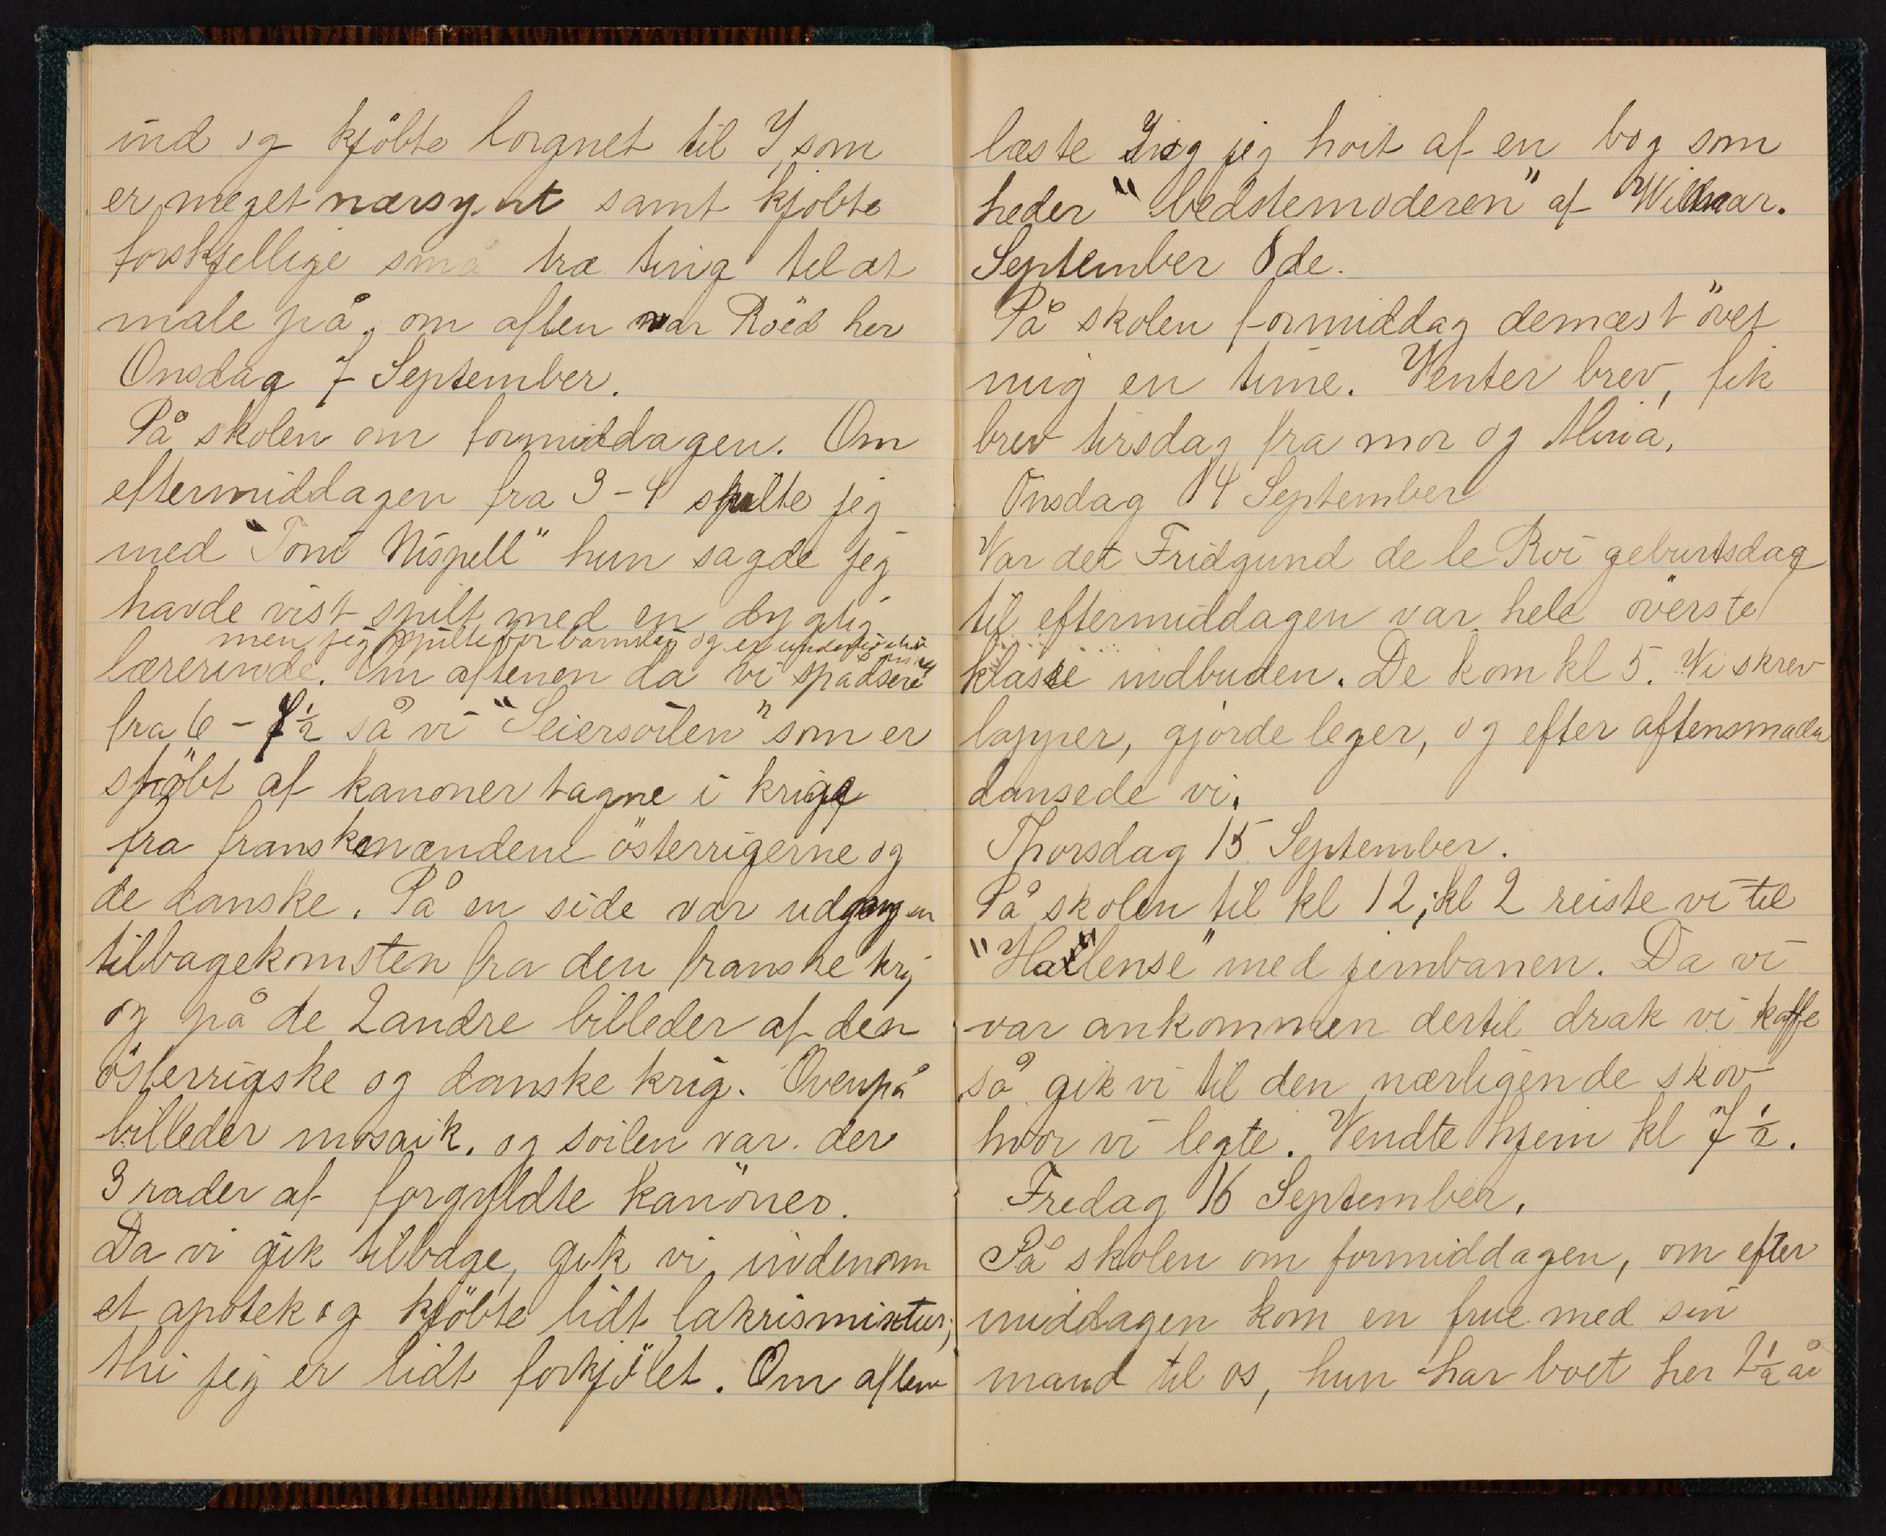 ind og kjöbte lorgnet til I, som
er meget nærsynt samt kjöbte
forskjellige små træ ting til at
male på, om aften var Röed her
Onsdag 7 September.
På skolen om formiddagen. Om
eftermiddagen fra 3-4 spilte jeg
med "Toni Nispell" hun sagde jeg
havde vist spilt med en dygtig
men jeg spilte for barnslig og
lærerinde. Om aftenen da vi spadsere
fra 6 - 7½ så vi "Seiersoilen" som er
stöbt af kanoner tagne i krige
fra franskemændene österrigerne og
de danske. På en side var udgangen
tilbagekomsten fra den franske krig
og på de 2 andre billeder af den
österrigske og danske krig. Ovenpå
billeder mosaik. og soilen var der
3 rader af forgyldte kanöner.
Da vi gik tilbage, gik vi indenom
et apotek og kjöbte lidt lakrismixtur;
thi jeg er lidt forkjölet. Om aftene
læste jeg hoit af en bog som
heder "bedstemoderen" af
September 8de.
På skolen formiddag demæst övet
mig en time. Venter brev, fik
brev tirsdag fra mor og Mina.
Onsdag 14 September
Var det Fridgund de le Roi geburtsdag
til eftermiddagen var hele överste
klasse indbuden. De kom kl 5. Vi skrev
lapper, gjorde leger, og efter aftensmaden
dansede vi.
Thorsdag 15 September.
På skolen til kl 12; kl 2 reiste vi til
"Hallense" med jernbanen. Da vi
var ankommen dertil drak vi kaffe
så gik vi til den nærligende skov
hvor vi legte. Vendte hjem kl 7½.
Fredag 16 September.
På skolen om formiddagen, om efter
middagen kom en frue med sin
mand til os, hun har boet her 2½ år